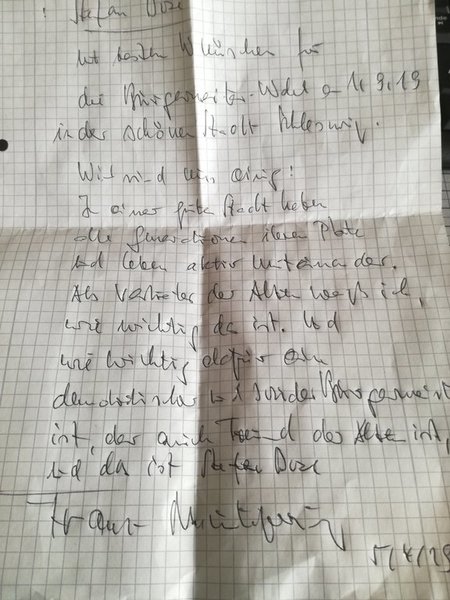 : Stefan Dose
mit besten Wünschen für
die Bürgermeister-Wahl am 1.9.19
in der schönen Stadt Schleswig.
Wir sind uns einig:
In einer guten Stadt haben
alle Generationen ihren Platz
und leben aktiv miteinander.
Als Vertreter der Alten weiß ich,
wie wichtig das ist. Und
wie wichtig dafür ein
demokratischer und sozialer Bürgermeister
ist, der auch Freund der Alten ist,
und das ist Stefan Dose
Franz Müntefering